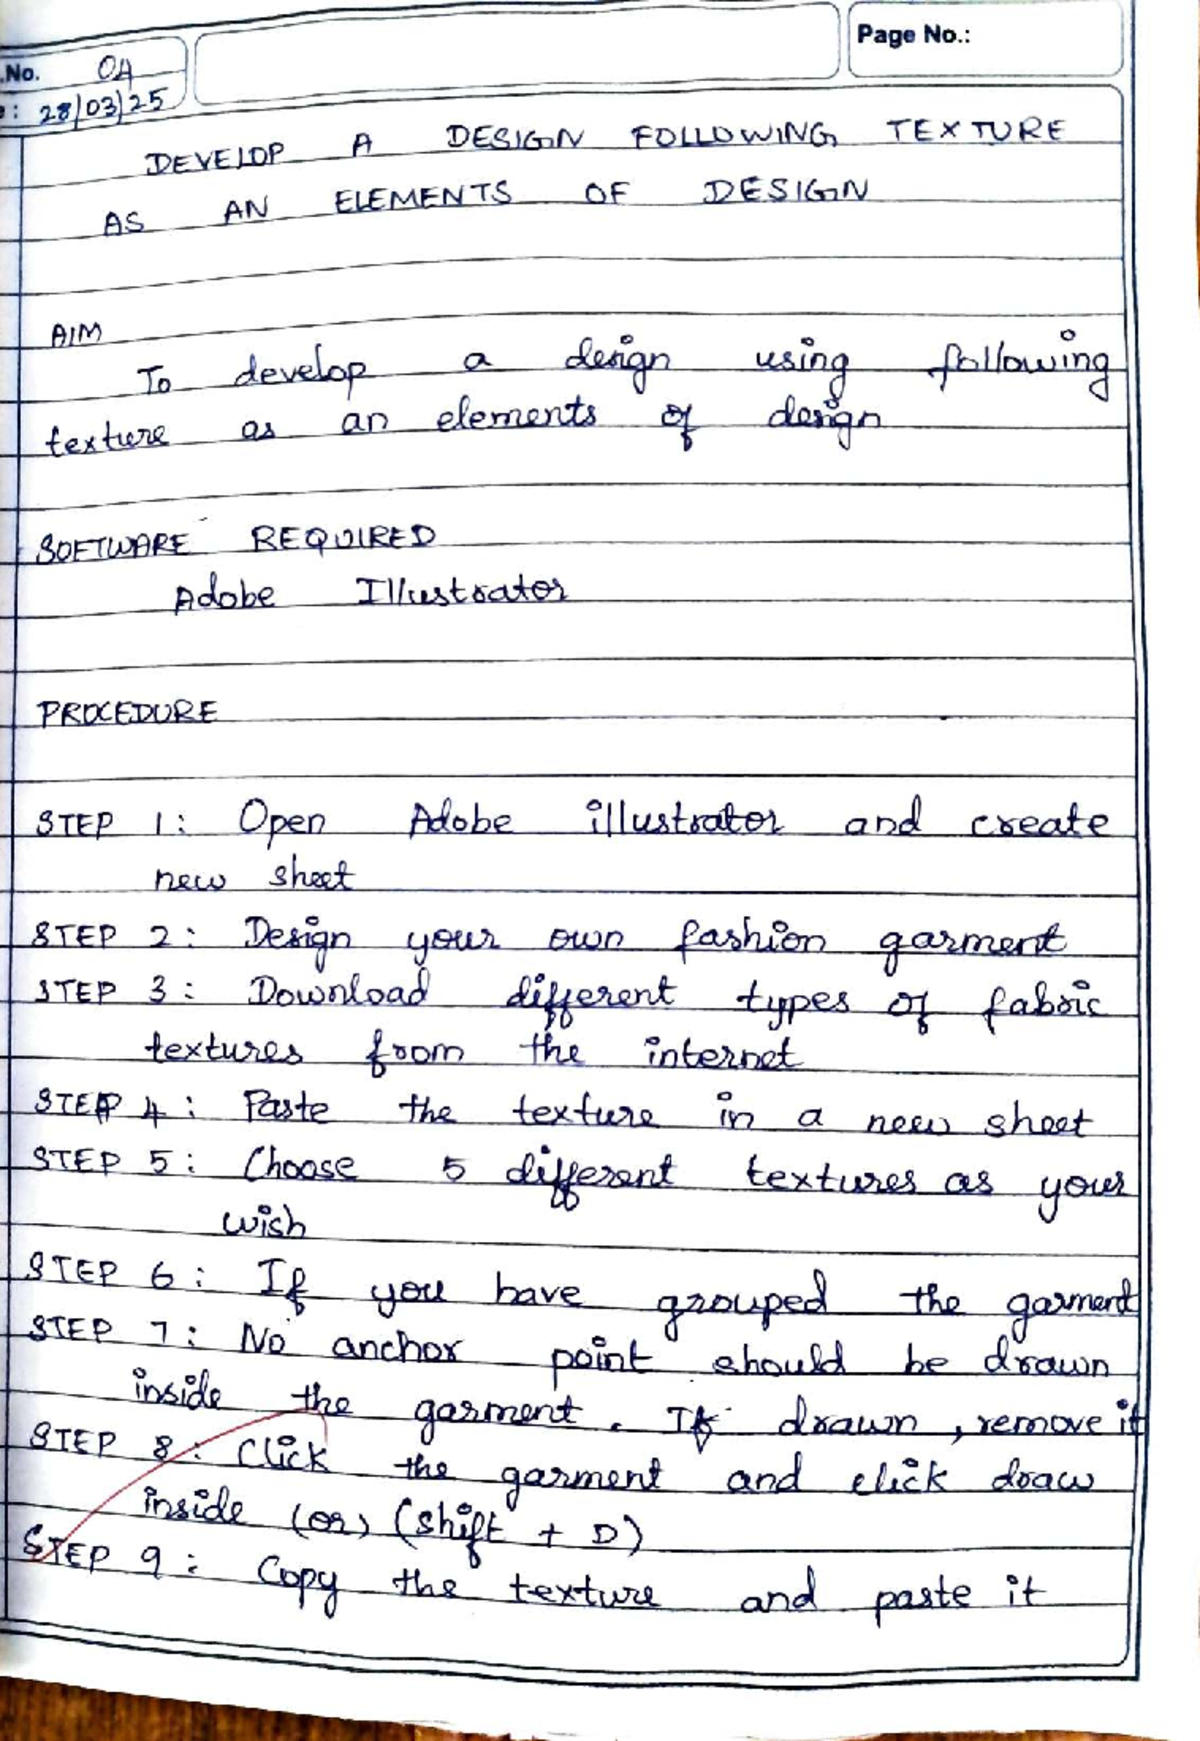 Page No.:
.No. 04
: 28/03/25
DEVELOP A DESIGN FOLLOWING TEXTURE
AS AN ELEMENTS OF DESIGN
AIM
To develop a design using following
texture as an elements of design
SOFTWARE REQUIRED
Adobe Illustrator
PROCEDURE
STEP 1: Open Adobe illustrator and create
new sheet
STEP 2: Design your own fashion garment
STEP 3: Download different types of fabric
textures from the internet
STEP 4: Paste the texture in a new sheet
STEP 5: Choose 5 different textures as your
wish
STEP 6: If you have grouped the garment
STEP 7: No anchor point should be drawn
inside the garment. If drawn, remove it
STEP 8: Click the garment and click draw
inside (or) (shift + D)
STEP 9: Copy the texture and paste it